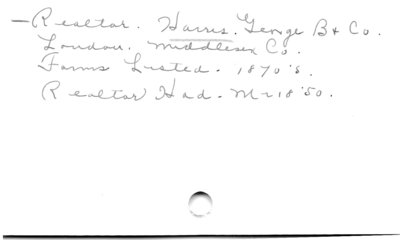 — Realtor. Harris. George B & Co.
London. Middlesex Co.
Farms Listed. 1870's.
Realtor Had. M-218'50.